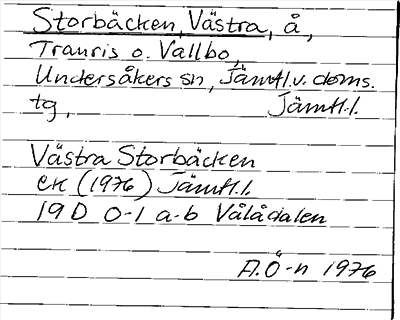 Storbäcken, Västra, å,
Tranris o. Vallbo,
Undersåkers sn, Jämtl. v. doms.
tg, Jämtl. l.
Västra Storbäcken
ek (1976) Jämtl. l.
19 D 0-1 a-b Vålådalen
A.Ö-n 1976